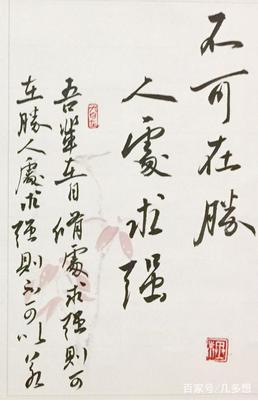 不可在勝
人處求强
吾輩在自脩處求强則可
在勝人處求强則不可以若
百家号/几多想